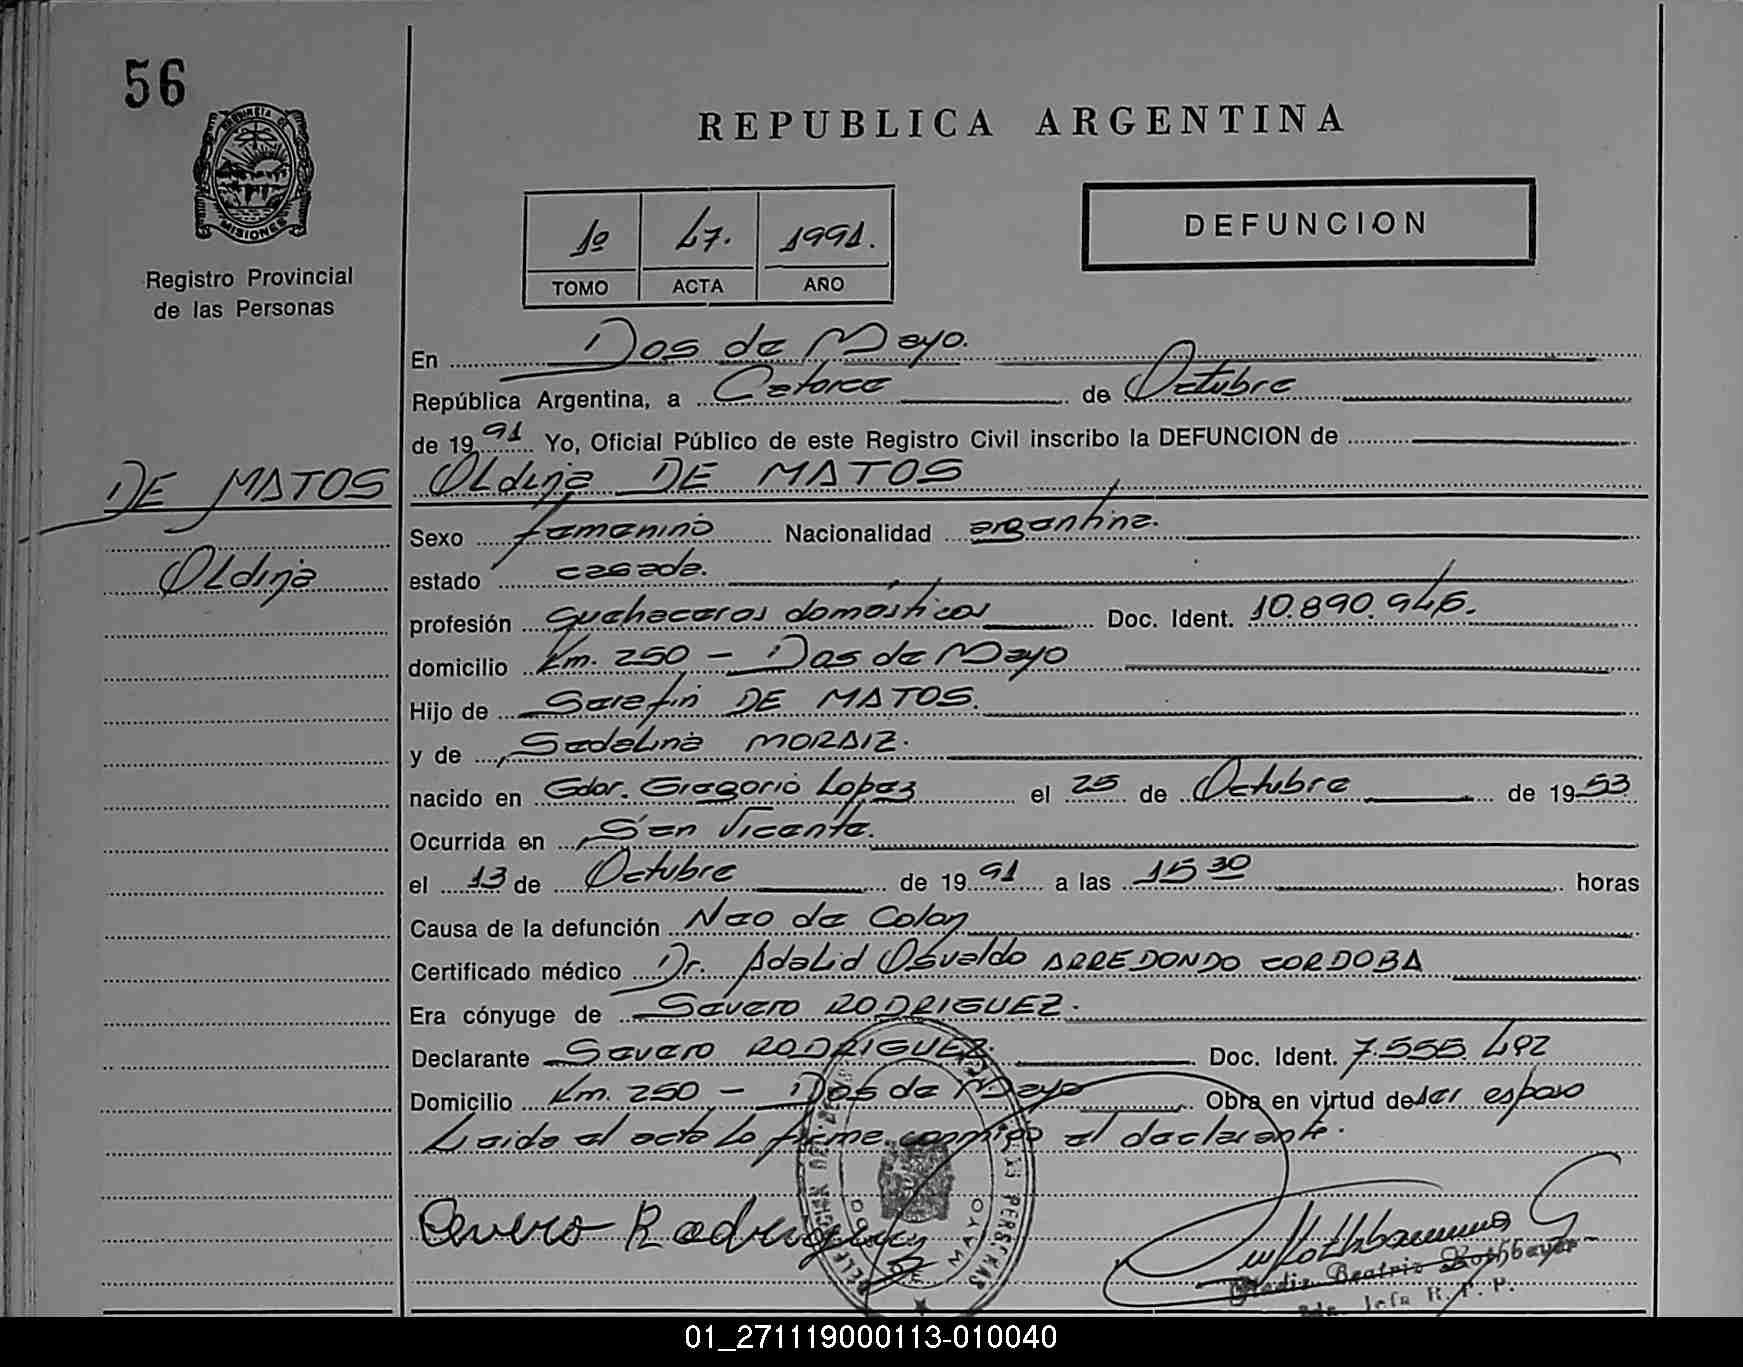 56
PROVINCIA DE
MISIONES
Registro Provincial
de las Personas
REPUBLICA ARGENTINA
DEFUNCION
1º 47. 1991.
TOMO ACTA AÑO
En Dos de Mayo.
República Argentina, a Catorce de Octubre
de 1991 Yo, Oficial Público de este Registro Civil inscribo la DEFUNCION de
DE MATOS Oldina DE MATOS
Sexo femenino Nacionalidad argentina.
Oldina estado casada.
profesión quehaceres domésticos Doc. Ident. 10.890.946.
domicilio Km. 250 - Dos de Mayo
Hijo de Serafín DE MATOS.
y de Sadelina MORAIZ.
nacido en Gdor. Gregorio Lopez el 25 de Octubre de 1953
Ocurrida en San Vicente.
el 13 de Octubre de 1991 a las 15 30 horas
Causa de la defunción Neo de Colon
Certificado médico Dr. Adalid Osvaldo ARREDONDO CORDOBA
Era cónyuge de Severo RODRIGUEZ.
Declarante Severo RODRIGUEZ. Doc. Ident. 7.555.492
Domicilio Km. 250 - Dos de Mayo Obra en virtud de ser esposo
Leido el acta la firme conmigo el declarante.
Severo Rodriguez
DOS DE MAYO
Beatriz
Jefa R. P. P.
01_271119000113-010040